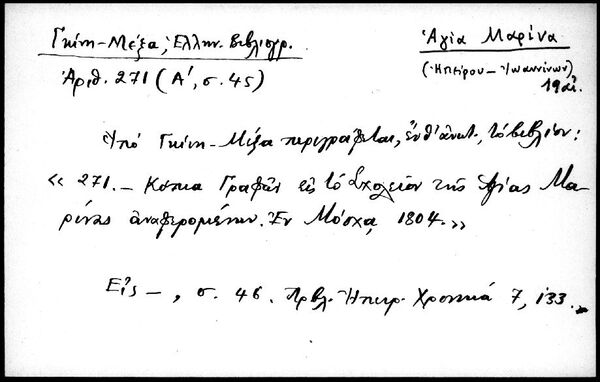 Γκίνη-Μέξα, Ἑλλην. Βιβλιογρ.
Ἀριθ. 271 (Α΄, σ. 45)
Ἁγία Μαρίνα
(Ἠπείρου - Ἰωαννίνων)
19
Ὑπό Γκίνη-Μέξα περιγράφεται, ἔνθ' ἀνωτ., τό βιβλίον:
« 271. - Κάποια Γραφῶν εἰς τό Σχολεῖον τῆς Ἁγίας Μα-
ρίνας ἀναφερομένων. Ἐν Μόσχᾳ, 1804. »
Εἰς -, σ. 46. Πρβλ. Ἠπειρ. Χρονικά 7, 133.